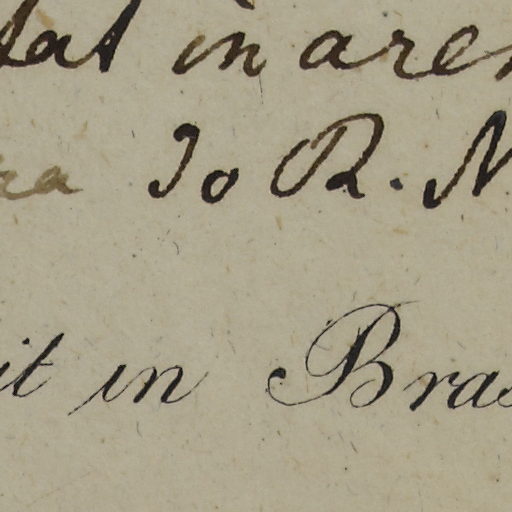 tat in aren
ra Jo R. N
it in Bras